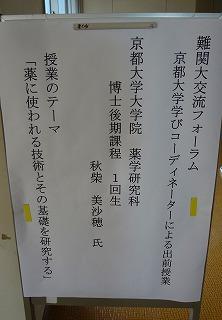 難関大交流フォーラム
京都大学学びコーディネーターによる出前授業
京都大学大学院　薬学研究科
博士後期課程　１回生
秋柴　美沙穂　氏
授業のテーマ
「薬に使われる技術とその基礎を研究する」